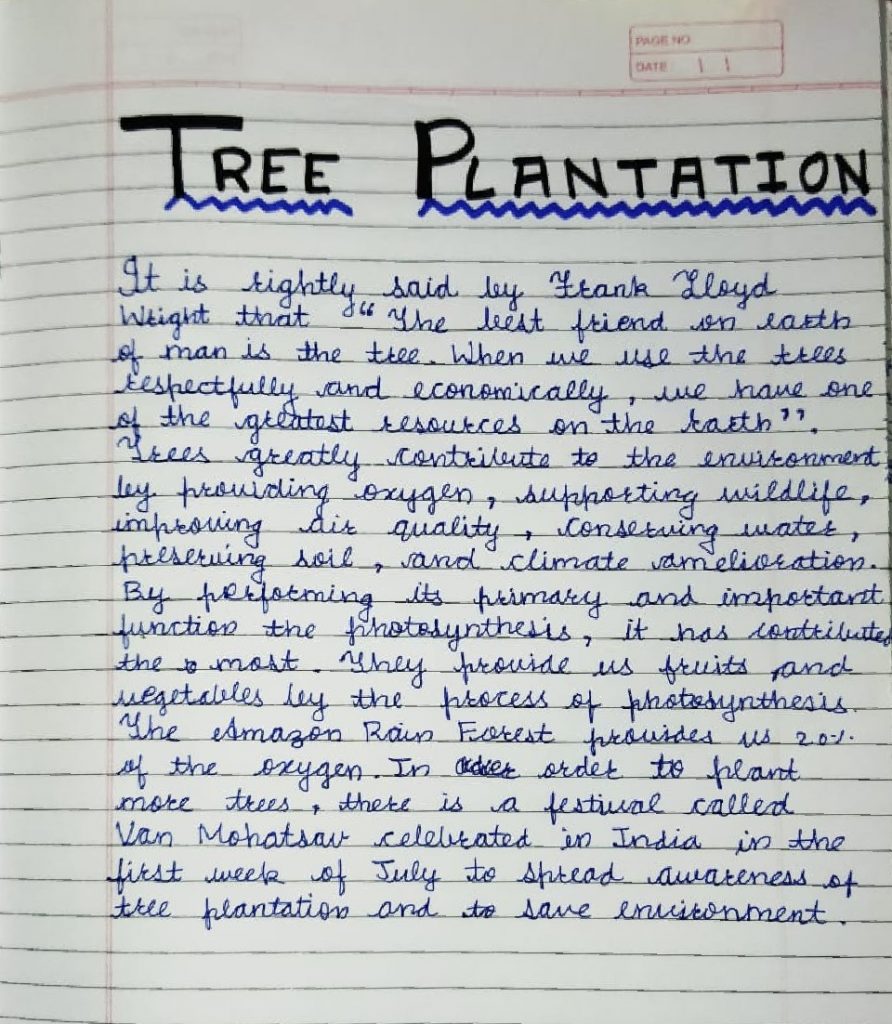 PAGE NO
DATE
TREE PLANTATION
It is rightly said by Frank Lloyd
Wright that "The best friend on earth
of man is the tree. When we use the trees
respectfully and economically, we have one
of the greatest resources on the earth".
Trees greatly contribute to the environment
by providing oxygen, supporting wildlife,
improving air quality, conserving water,
preserving soil, and climate amelioration.
By performing its primary and important
function the photosynthesis, it has contributed
the most. They provide us fruits and
vegetables by the process of photosynthesis.
The Amazon Rain Forest provides us 20%
of the oxygen. In order to plant
more trees, there is a festival called
Van Mohatsav celebrated in India in the
first week of July to spread awareness of
tree plantation and to save environment.